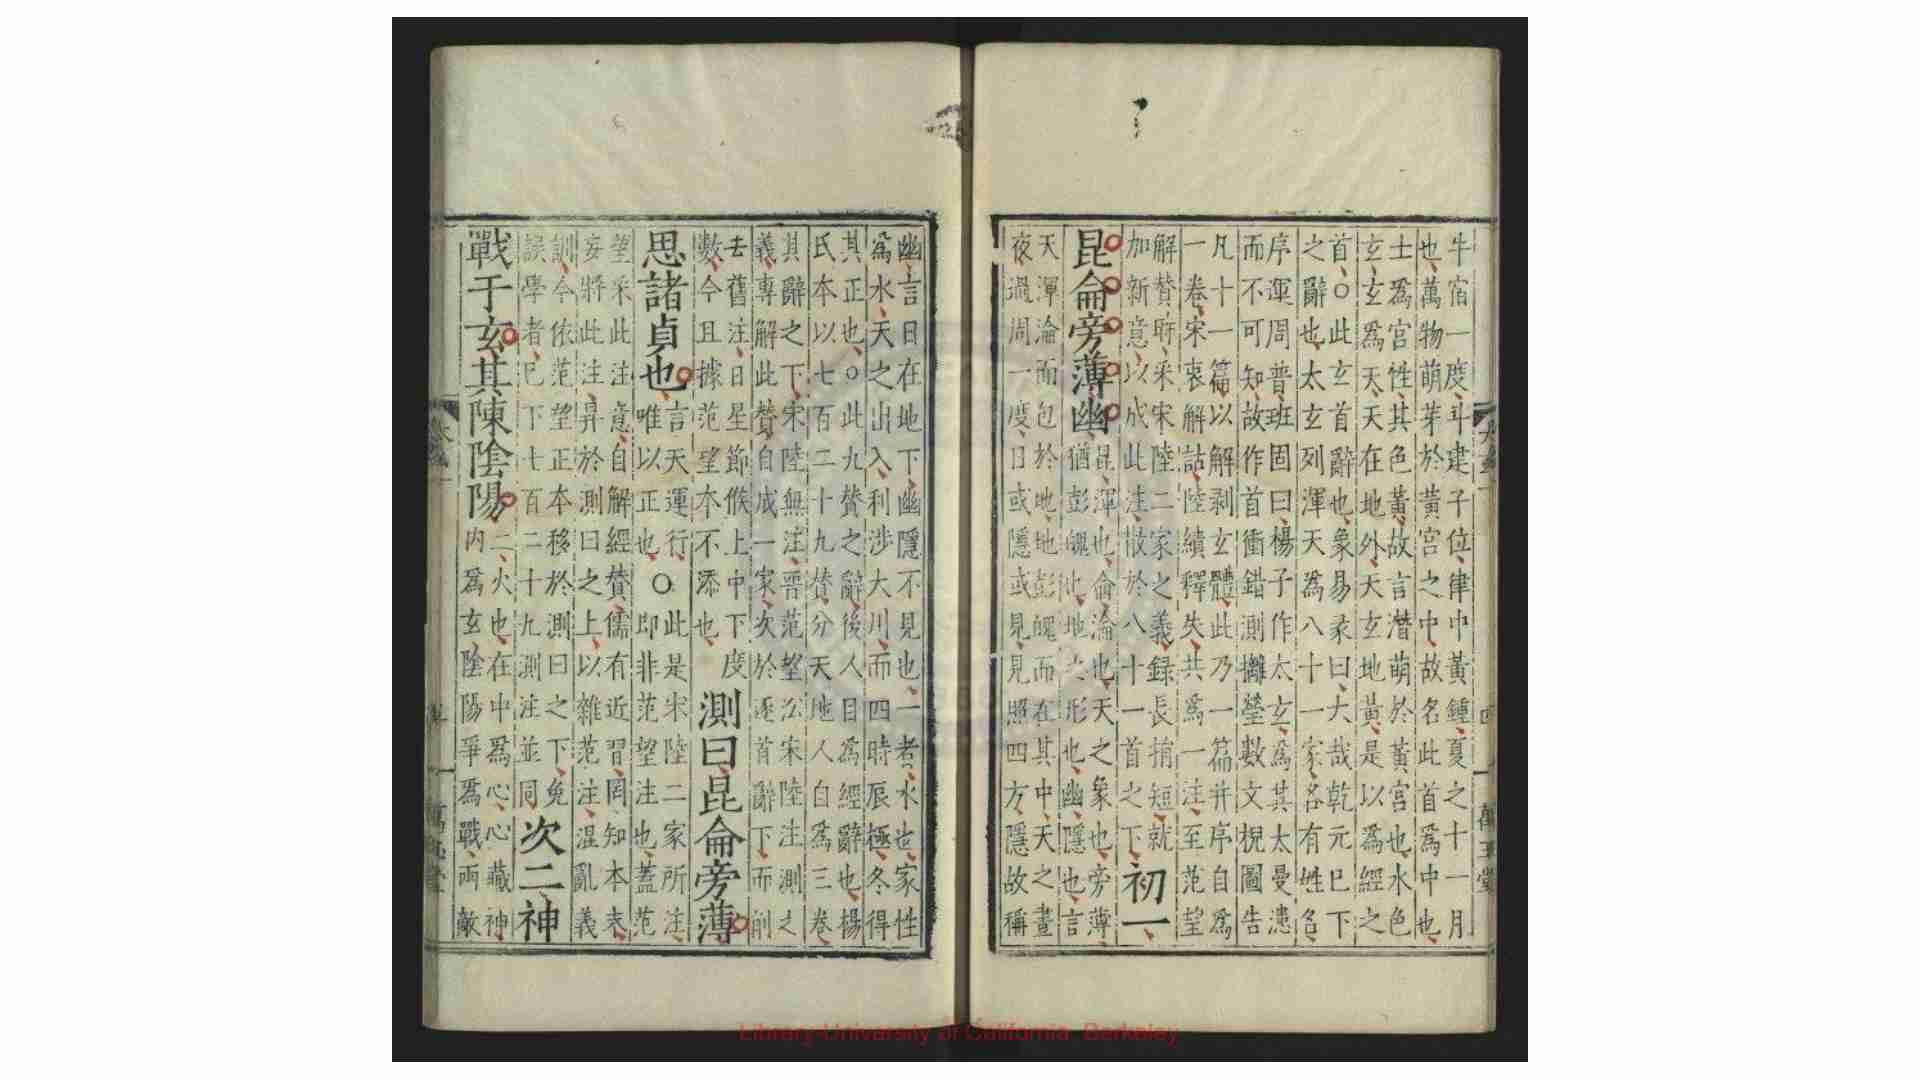 牛宿一度斗建子位律中黃鍾夏之十一月
也萬物萌芽於黃宮之中故名此首爲中也
土爲宮性其色黃故言潜萌於黃宮也水色
玄玄爲天天在地外天玄地黃是以爲經之
首○此玄首辭也象易彖曰大哉乾元巳下
之辭也太玄列渾天爲八十一家各有姓名
序運周普班固曰楊子作太玄爲其太曼漶
而不可知故作首衝錯測攡瑩數文棿圖告
凡十一篇以解剥玄體此乃一篇并序自爲
一卷宋衷解詁陸績釋失共爲一注至范望
解賛昈采宋陸二家之義録長捐短就
加新意以成此注散於八十一首之下初一
昆侖旁薄幽
昆渾也侖淪也天之象也旁薄
猶彭魄也地之形也幽隱也言
天渾淪而包於地地彭魄而在其中天之晝
夜過周一度日或隱或見見照四方隱故稱
萬玉堂
幽言日在地下幽隱不見也一者水也家性
爲水天之出入利涉大川而四時辰極冬得
其正也○此九賛之辭後人目爲經辭也楊
氏本以七百二十九賛分天地人自爲三卷
其辭之下宋陸無注晋范望公宋陸注測之
義專解此賛自成一家次於逐首辭下而削
去舊注日星節候上中下度
數今且據范望本不添也測曰昆侖旁薄
思諸貞也
言天運行○此是宋陸二家所注
唯以正也即非范望注也蓋范
望采此注意自解經賛儒有近習罔知本末
妄將此注昇於測曰之上以雜范注混亂義
訓今依范望正本移於測曰之下免
誤學者巳下七百二十九測注並同次二神
戰于玄其陳陰陽
二火也在中爲心心藏神
内爲玄陰陽爭爲戰兩敵
Library University of California Berkeley